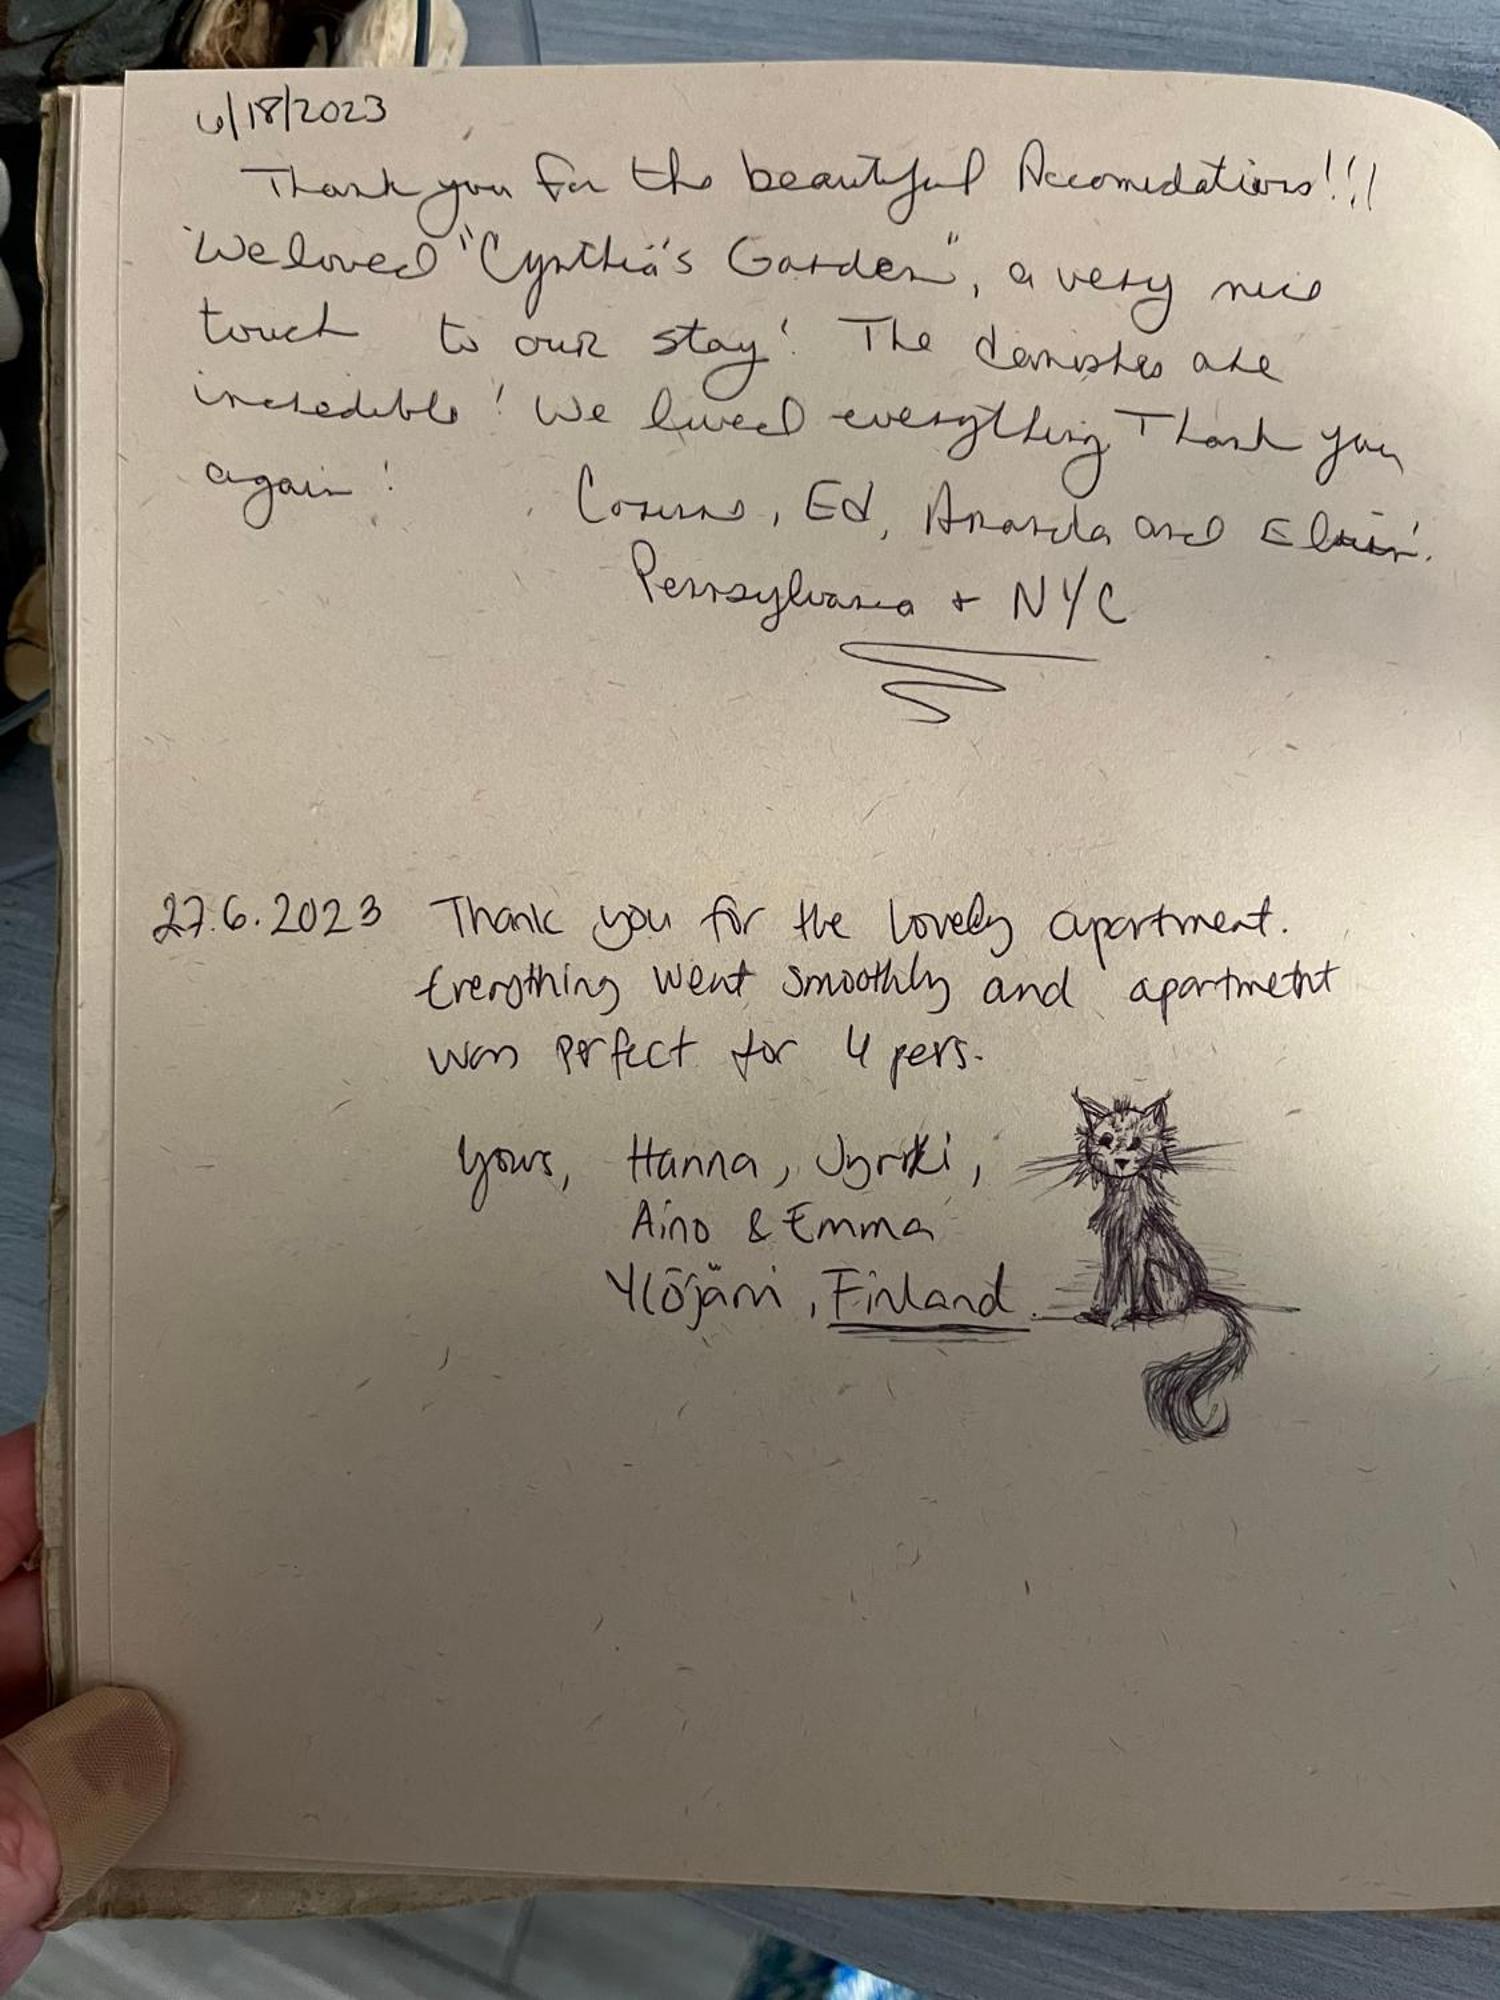 6/18/2023
Thank you for the beautiful Accomedations!!!
We loved "Cynthia's Garden", a very nice
touch to our stay! The are
incredible! We loved everything Thank you
again! , Ed, Amanda and
Pennsylvania + NYC
27.6.2023 Thank you for the lovely apartment.
Everything went smoothly and apartment
was perfect for 4 pers.
Yours, Hanna, Jyrki,
Aino & Emma
Ylöjärvi, Finland.